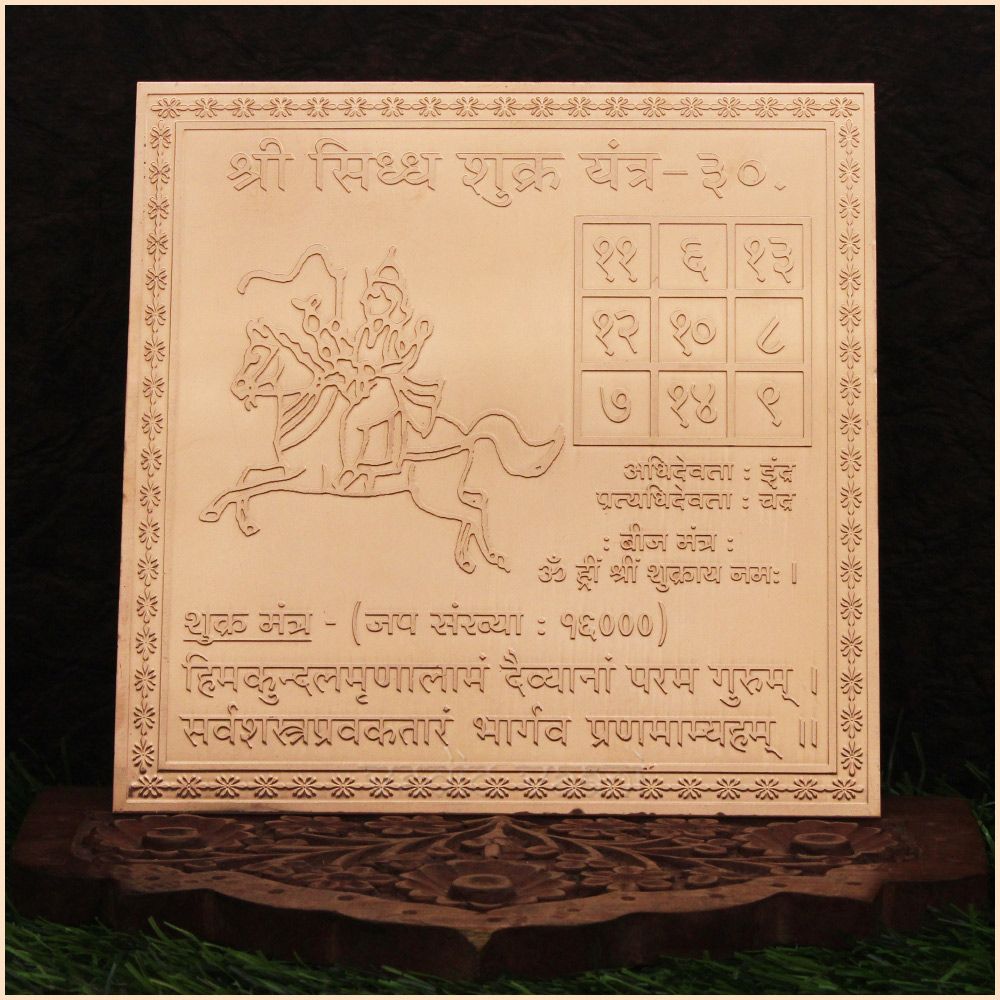 श्री सिध्ध शुक्र यंत्र-३०.
११ ६ १३
१२ १० ८
७ १४ ९
अधिदेवता : इंद्र
प्रत्यधिदेवता : चद्र
: बीज मंत्र :
ॐ ह्रीं श्रीं शुक्राय नमः ।
शुक्र मंत्र - (जप संख्या : १६०००)
हिमकुन्दलमृणालामं दैव्यानां परम गुरुम् ।
सर्वशस्त्रप्रवकतारं भार्गव प्रणमाम्यहम् ॥